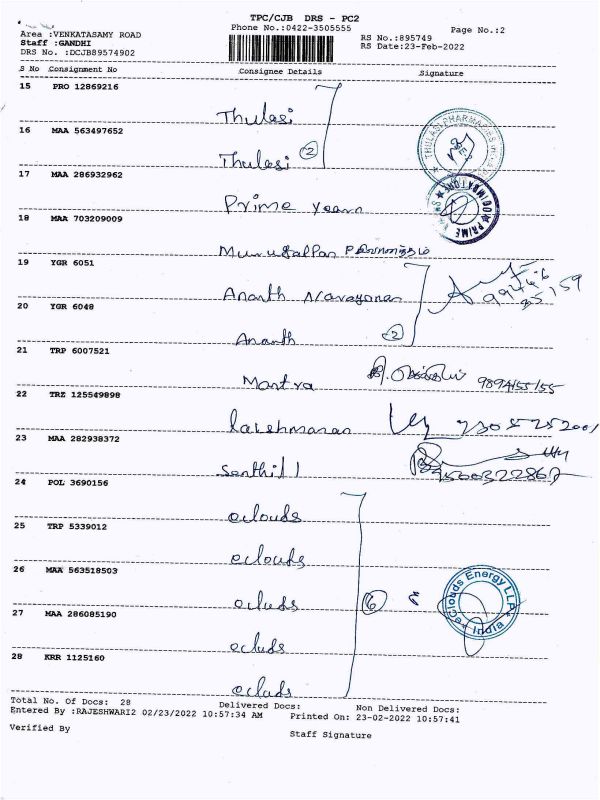 TPC/CJB DRS - PC2
Phone No.:0422-3505555
Page No.:2
Area :VENKATASAMY ROAD
RS No.:895749
Staff :GANDHI
RS Date:23-Feb-2022
DRS No. :DCJB89574902
S No Consignment No Consignee Details Signature
15 PRO 12869216
Thulasi
16 MAA 563497652
Thulasi 2
THULASI PHARMACIES
17 MAA 286932962
Prime years
PRIME COIMBATORE
18 MAA 703209009
19 YGR 6051
Ananth Narayanan
20 YGR 6048
Ananth 2
21 TRP 6007521
Mantra 9894155155
22 TRZ 125549898
Lakshmanan
23 MAA 282938372
Senthil 9500322867
24 POL 3690156
eclouds
25 TRP 5339012
eclouds
26 MAA 563518503
ecluds 6
eClouds Energy LLP India
27 MAA 286085190
ecluds
28 KRR 1125160
eclads
Total No. Of Docs: 28 Delivered Docs: Non Delivered Docs:
Entered By :RAJESHWARI2 02/23/2022 10:57:34 AM Printed On: 23-02-2022 10:57:41
Verified By Staff Signature